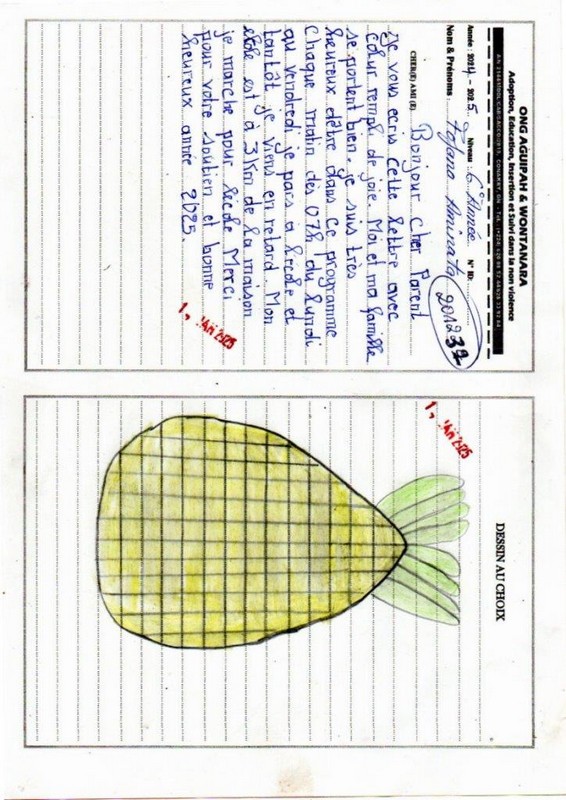 ONG AGUIPAH & WONTANARA
Adoption, Education, Insertion et Suivi dans la non violence
Année : 2024 - 2025. Niveau : 6e Année N° ID:
Nom & Prénoms Fofana Aminata 201237
CHER(E) AMI (E) Bonjour Cher Parent
Je vous ecris cette lettre avec
cœur rempli de joie. Moi et ma famille
se portent bien. je suis très
heureux d'être dans ce programme
Chaque matin dès 07h du lundi
au vendredi je pars à l'école et
tantôt je viens en retard. Mon
école est à 3Km de la maison
je marche pour l'école Merci
pour votre soutien et bonne
heureux année 2025.
1, JAN 2025
1, JAN 2025
DESSIN AU CHOIX